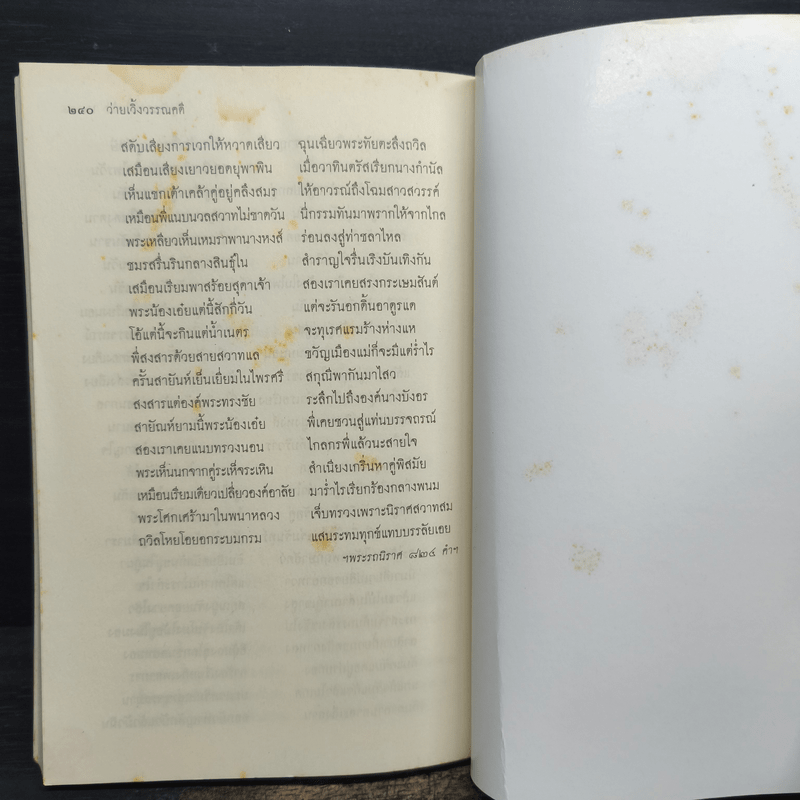 ๒๔๐ ว่ายเวิ้งวรรณคดี
สดับเสียงการเวกให้หวาดเสียว ฉุนเฉียวพระทัยตะลึงถวิล
เสมือนเสียงเยาวยอดยุพาพิน เมื่อวาทินตรัสเรียกนางกำนัล
เห็นแขกเต้าเคล้าคู่อยู่คลึงสมร ให้อาวรณ์ถึงโฉมสาวสวรรค์
เหมือนพี่แนบนวลสวาทไม่ขาดวัน นี่กรรมทันมาพรากให้จากไกล
พระเหลียวเห็นเหมราพานางหงส์ ร่อนลงสู่ท่าชลาไหล
ชมรสรื่นรินกลางสินธุ์ใน สำราญใจรื่นเริงบันเทิงกัน
เสมือนเรียมพาสร้อยสุดาเจ้า สองเราเคยสรงกระเษมสันต์
พระน้องเอ๋ยแต่นี้สักกี่วัน แต่จะรันอกดิ้นอาดูรแด
โอ้แต่นี้จะกินแต่น้ำเนตร จะทุเรศแรมร้างห่างแห
พี่สงสารด้วยสายสวาทแล ขวัญเมืองแม่ก็จะมีแต่ร่ำไร
ครั้นสายันห์เย็นเยี่ยมในไพรศรี สกุณีพากันมาไสว
สงสารแต่องค์พระทรงชัย ระลึกไปถึงองค์นางบังอร
สายัณห์ยามนี้พระน้องเอ๋ย พี่เคยชวนสู่แท่นบรรจถรณ์
สองเราเคยแนบทรวงนอน ไกลกรพี่แล้วนะสายใจ
พระเห็นนกจากคู่ระเห็จระเหิน สำเนียงเกริ่นหาคู่พิสมัย
เหมือนเรียมเดียวเปลี่ยวองค์อาลัย มาร่ำไรเรียกร้องกลางพนม
พระโศกเศร้ามาในพนาหลวง เจ็บทรวงเพราะนิราศสวาทสม
ถวิลโหยโอยอกระบมกรม แสนระทมทุกข์แทบบรรลัยเอย
ฯพระรถนิราศ ๘๒๔ คำฯ